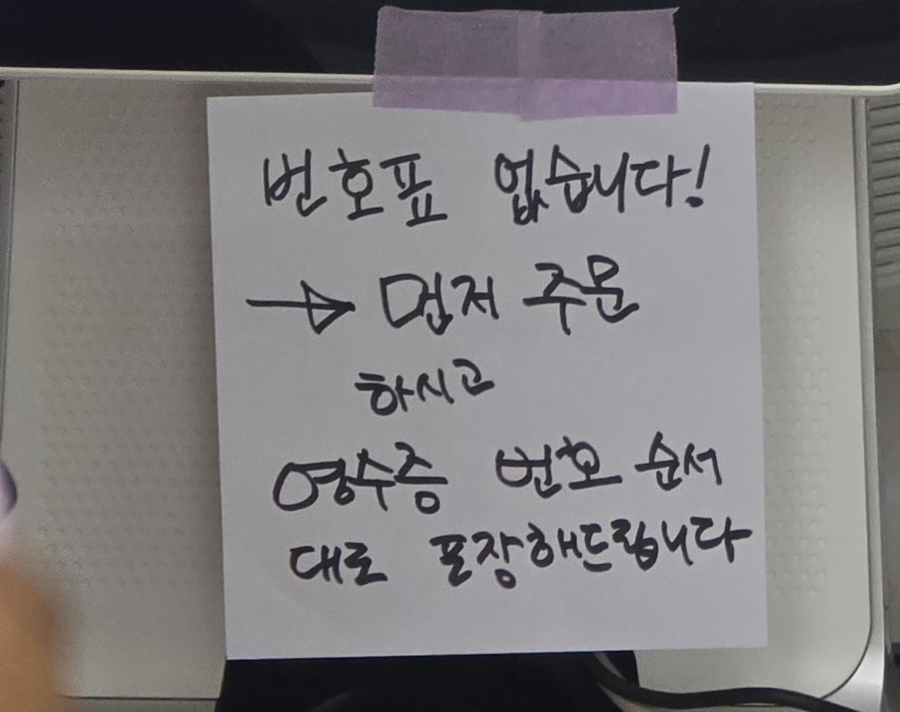 번호표 없습니다!
→ 먼저 주문
하시고
영수증 번호 순서
대로 포장해드립니다